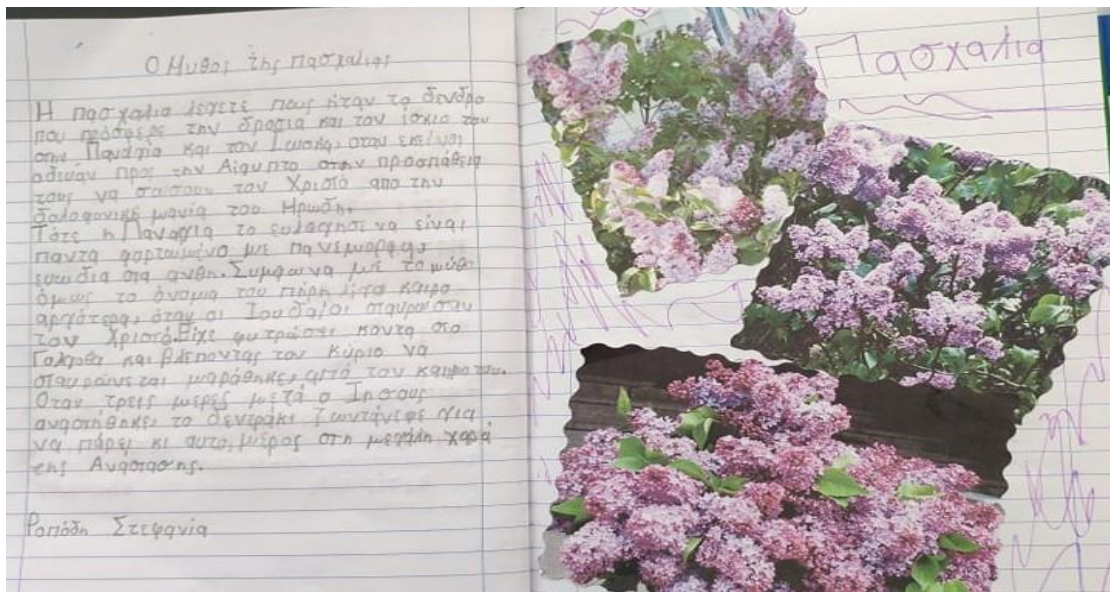 Ο Μυθος της πασχαλιας
Η πασχαλια λεγετε πως ήταν το δενδρο
που πρόσφερε την δροσια και τον ίσκιο του
στην Παναγία και τον Ιωσηφ, οταν εκείνοι
οδευαν προς την Αίγυπτο στην προσπάθεια
τους να σώσουν τον Χριστό απο την
δολοφονική μανία του Ηρωδη.
Τότε η Παναγία το ευλόγησε να είναι
παντα φορτωμένο με πανεμορφα,
ευωδια στα ανθη. Συμφωνα με το μύθο
όμως το όνομα του πήρε λίγο καιρο
αργότερα, όταν οι Ιουδαίοι σταυρωσαν
τον Χριστό. Είχε φυτρώσει κοντα στο
Γολγοθα και βλεποντας τον Κύριο να
σταυρώνεται μαράθηκε, από τον καημο του.
Οταν τρεις μερες μετά ο Ιησους
αναστήθηκε το δεντράκι ζωντάνεψε για
να πάρει κι αυτο, μέρος στη μεγάλη χαρά
της Ανάστασης.
Ροπόδη Στεφανία
Πασχαλια